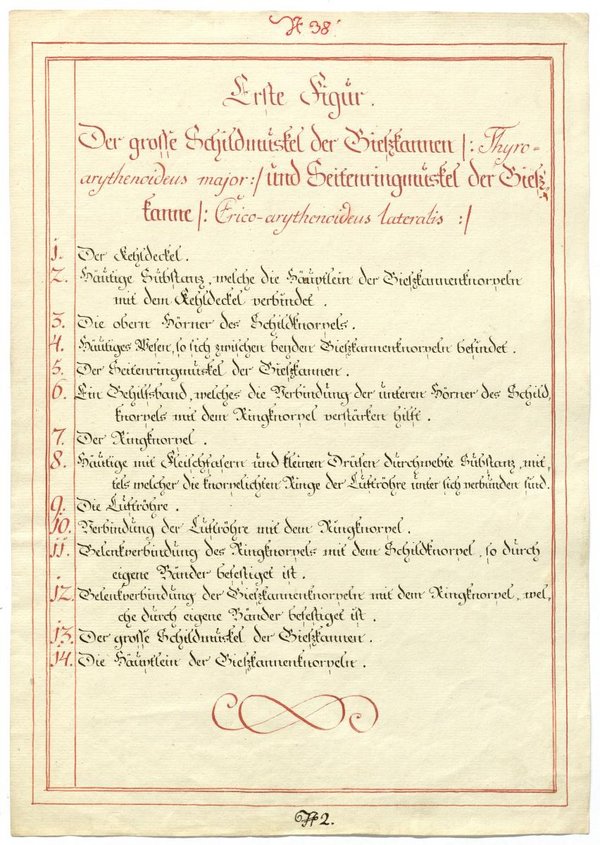 № 38.
Erste Figur.
Der grosse Schildmuskel der Gießkannen |: Thyro-
arythenoideus major :| und Seitenringmuskel der Gieß,
kanne |: Crico-arythenoideus lateralis :|
1. Der Kehldeckel.
2. Häutige Substanz, welche die Häuptlein der Gießkannenknorpeln
mit dem Kehldeckel verbindet.
3. Die obern Hörner des Schildknorpels.
4. Häutiges Wesen, so sich zwischen beyden Gießkannenknorpeln befindet.
5. Der Seitenringmuskel der Gießkannen.
6. Ein Hilfsband, welches die Verbindung der unteren Hörner des Schild,
knorpels mit dem Ringknorpel verstärken hilft.
7. Der Ringknorpel.
8. Häutige mit Fleischfasern und kleinen Drüsen durchwebte Substanz, mit,
tels welcher die knorpelichten Ringe der Luftröhre unter sich verbunden sind.
9. Die Luftröhre.
10. Verbindung der Luftröhre mit dem Ringknorpel.
11. Gelenkverbindung des Ringknorpels mit dem Schildknorpel, so durch
eigene Bänder befestiget ist.
12. Gelenkverbindung der Gießkannenknorpeln mit dem Ringknorpel, wel,
che durch eigene Bänder befestiget ist.
13. Der grosse Schildmuskel der Gießkannen.
14. Die Häuptlein der Gießkannenknorpeln.
№ 2.